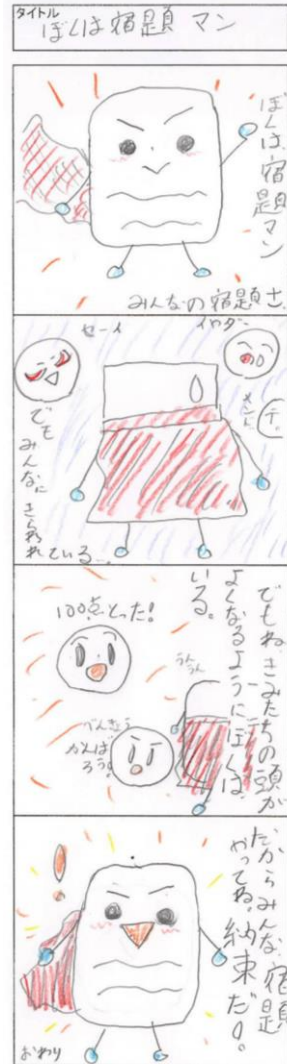 タイトル
ぼくは宿題マン
ぼくは宿題マン
みんなの宿題さ
イヤダー
セーイ
テ
でも
みんなに
きらわれている…。
でもね、きみたちの頭が
よくなるようにぼくは、
いる。
うんうん
100点とった!
べんきょう
がんば
ろう!
だからみんな、宿題
やってね。納束だ!。
おわり